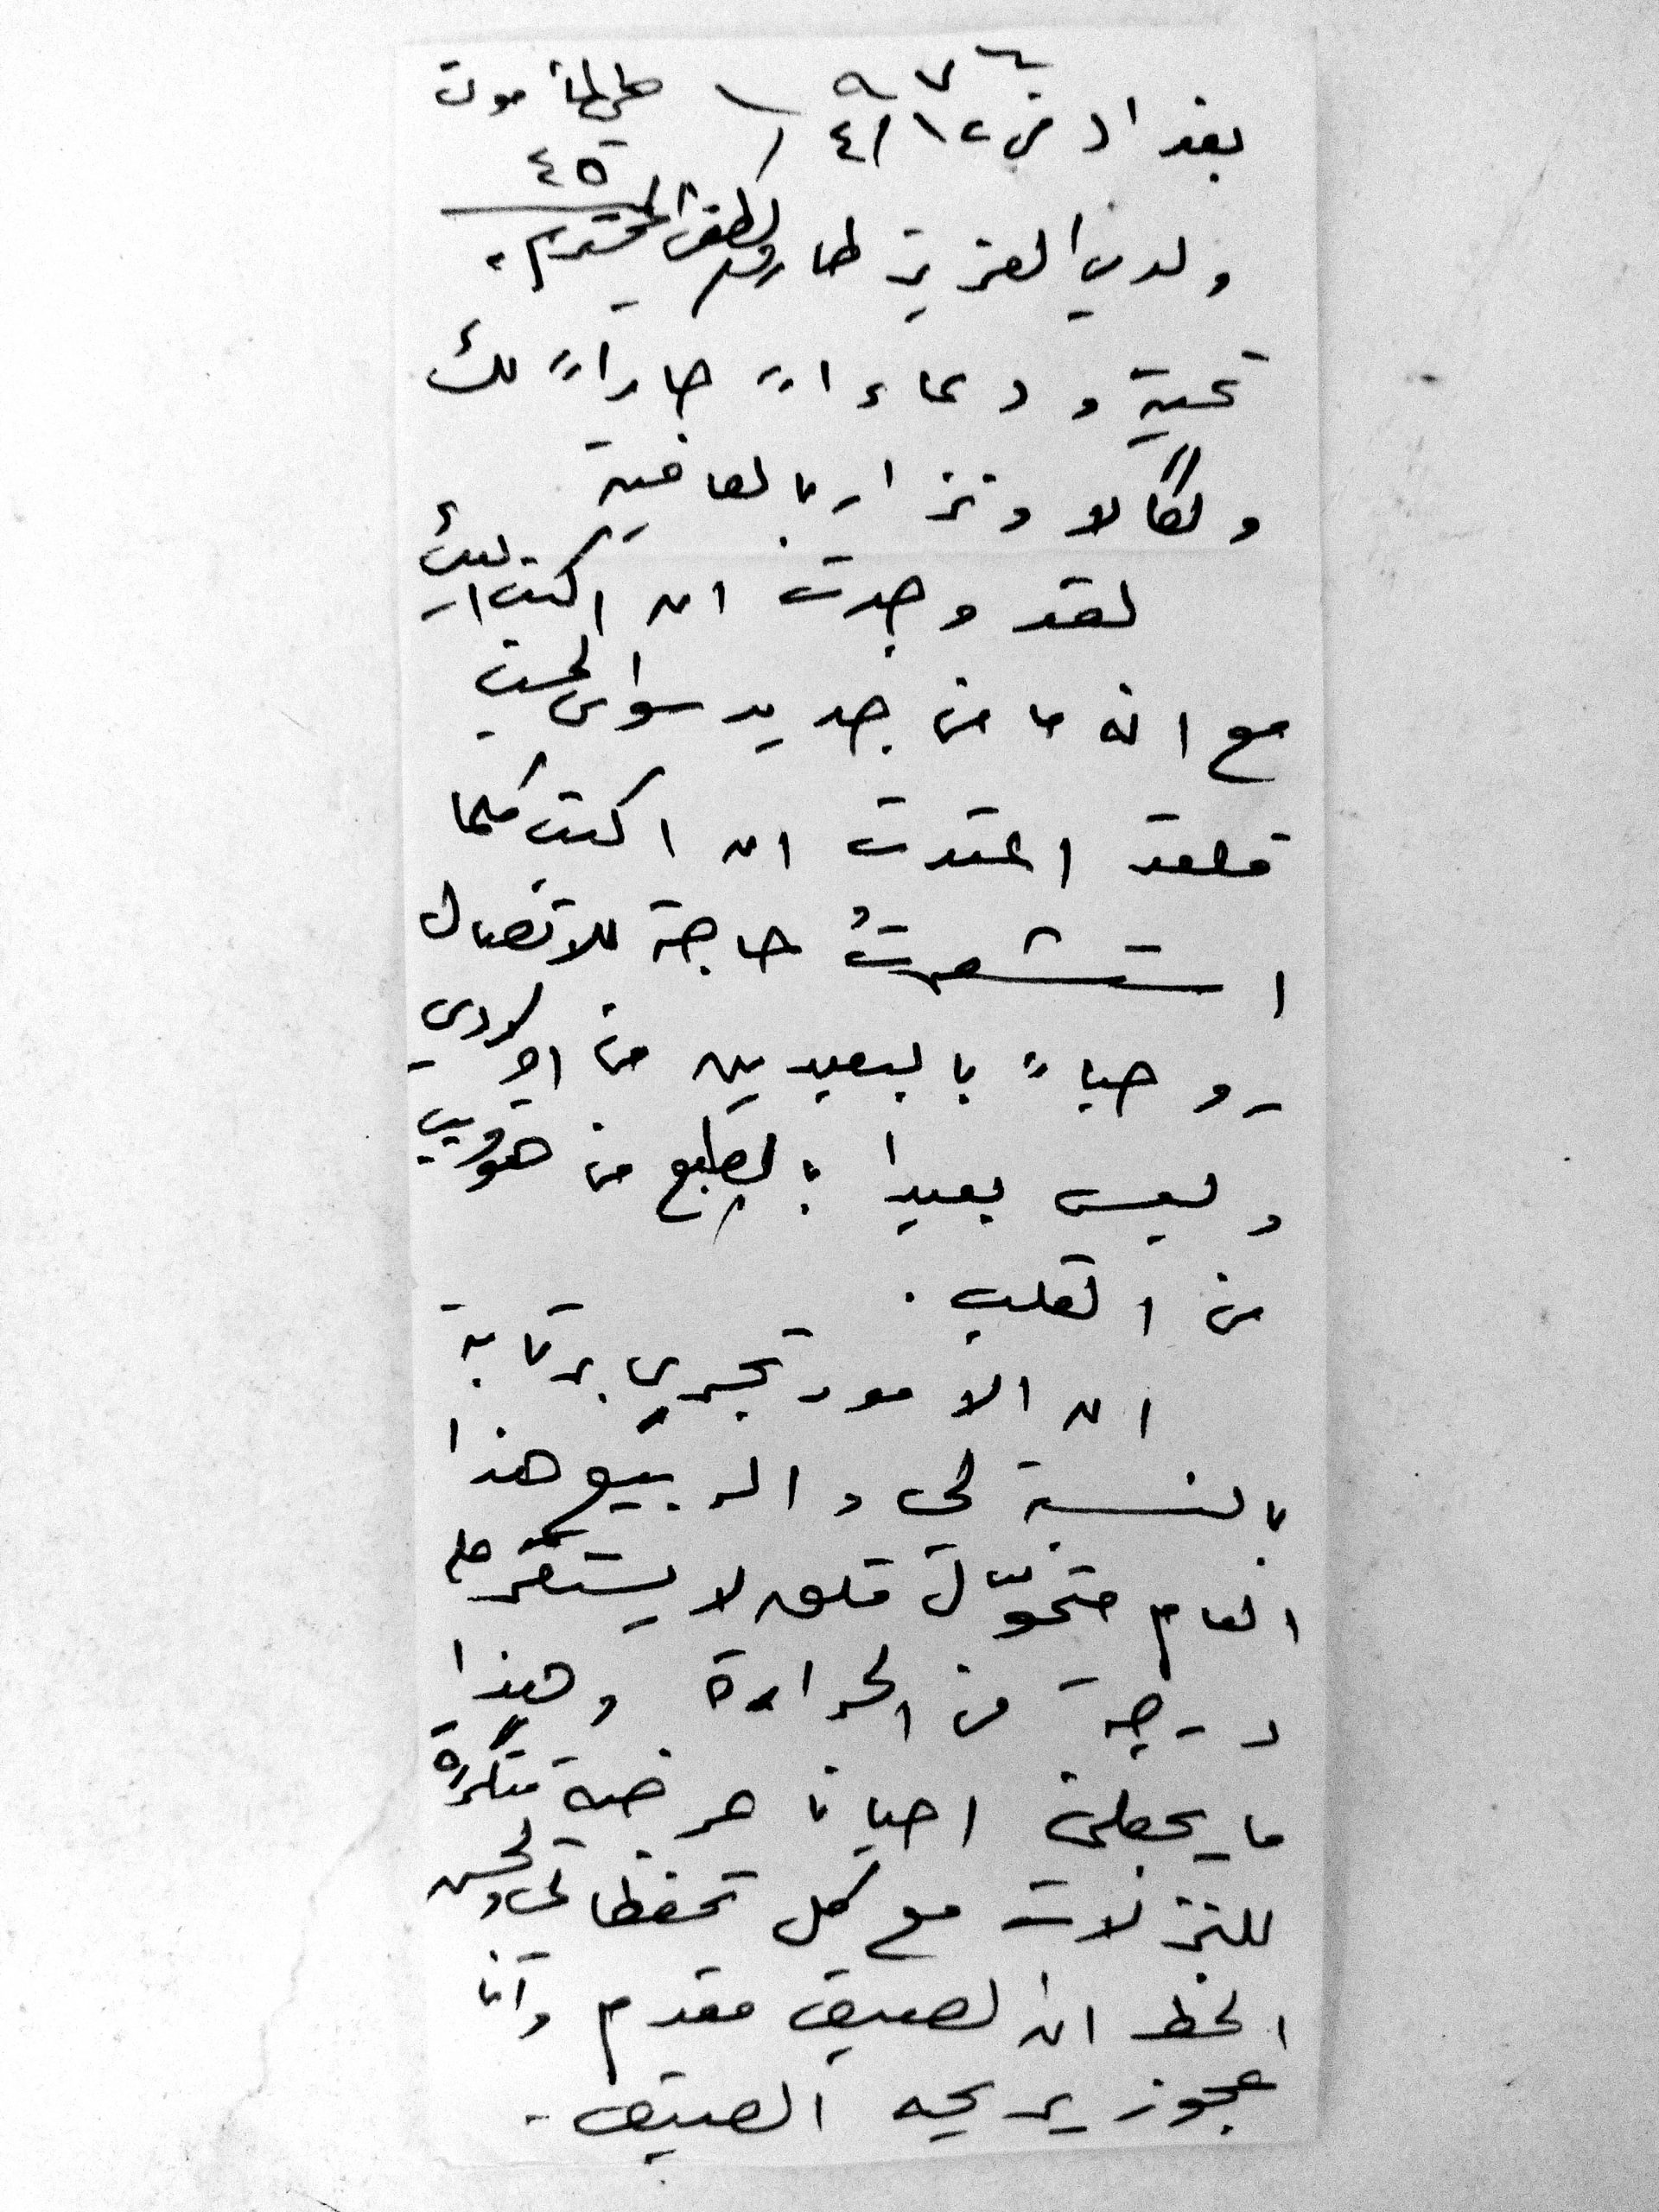 بغداد في ١٢/٤/٩٧٦ حي المأمون
٤٥
ولدي العزيز طارق لطفي المحترم،
تحية ودعاءاً حاراً لك
ولگالا ونزار بالعافية
لقد وجدت ان اكتب اليك
مع انه ما من جديد سوى الحسن
فلقد اعتدت ان اكتب كلما
استشعرتُ حاجة للاتصال
روحياً بالبعيدين من اولادي
وليس بعيدا بالطبع من هو قريب
من القلب.
ان الامور تجري برتابة
بالنسبة لي والربيع هذا
العام متحوّل قلق لا يستقر على
درجة من الحرارة وهذا
ما يجعلني احيانا عرضة متكررة
للنزلات مع كل تحفظاتي ولحسن
الحظ ان الصيف مقدم وانا
عجوز يريحه الصيف.